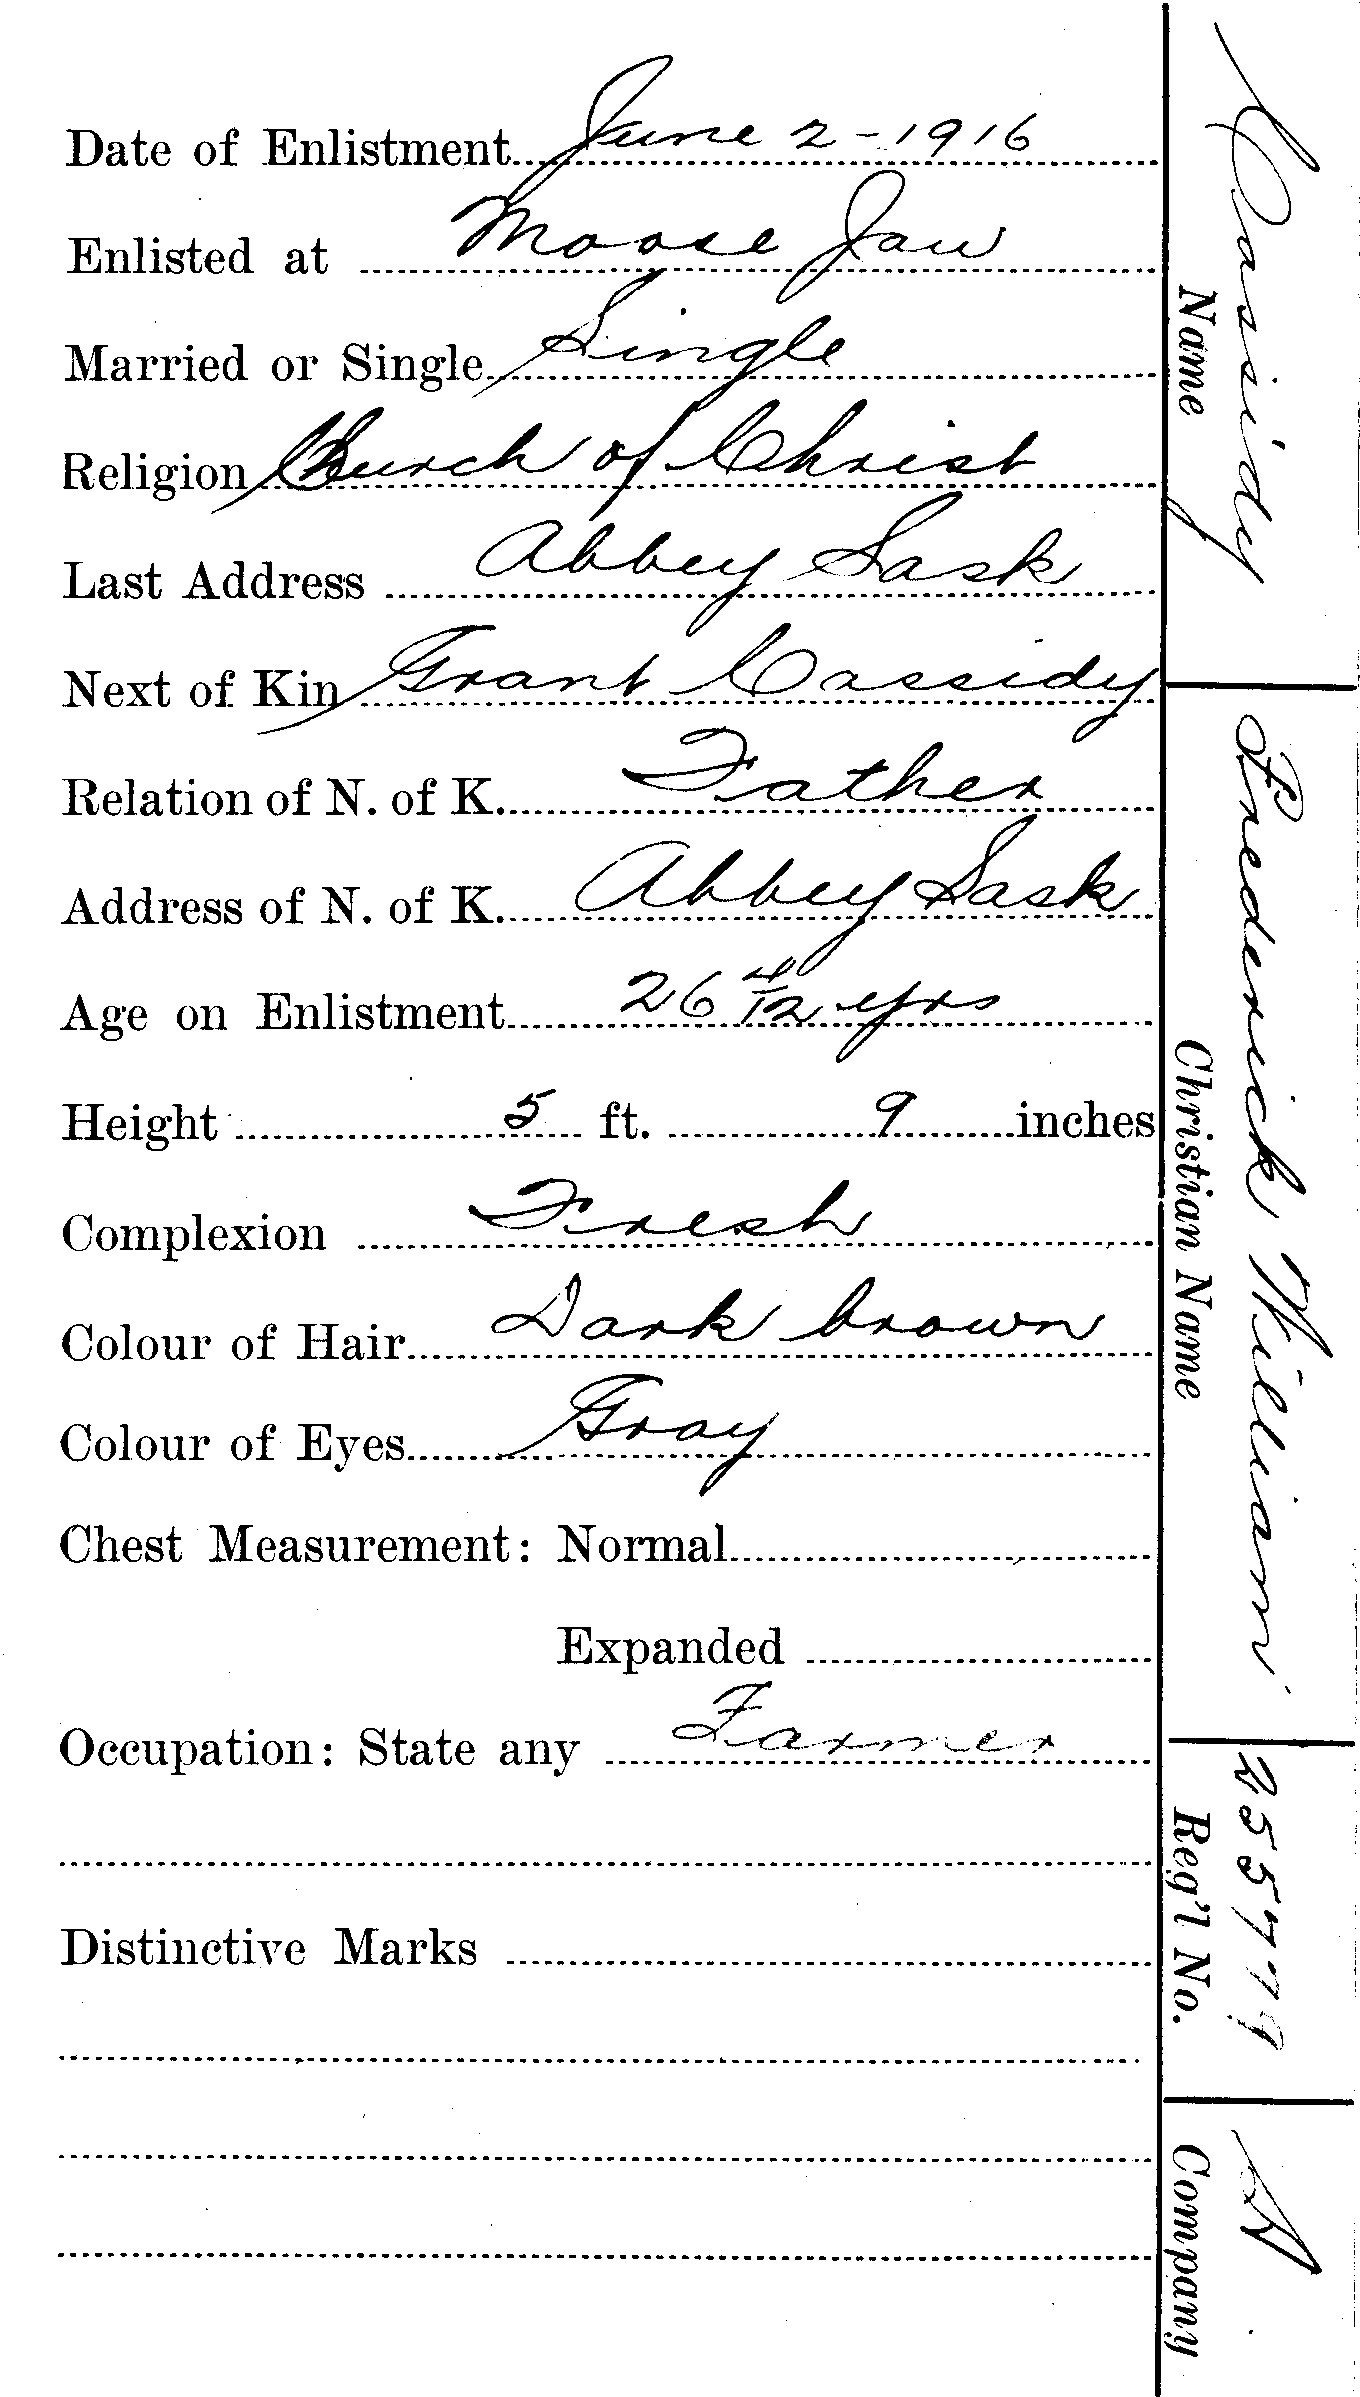 Date of Enlistment June 2 - 1916
Enlisted at Moose Jaw
Married or Single Single
Religion Church of Christ
Last Address Abbey Sask
Next of Kin Grant Cassidy
Relation of N. of K. Father
Address of N. of K. Abbey Sask
Age on Enlistment 26 4/12 yrs
Height 5 ft. 9 inches
Complexion Fresh
Colour of Hair Dark brown
Colour of Eyes Gray
Chest Measurement: Normal
Expanded
Occupation: State any Farmer
Distinctive Marks
Cassidy
Name
Frederick William
Christian Name
255779
Reg'l No.
A
Company